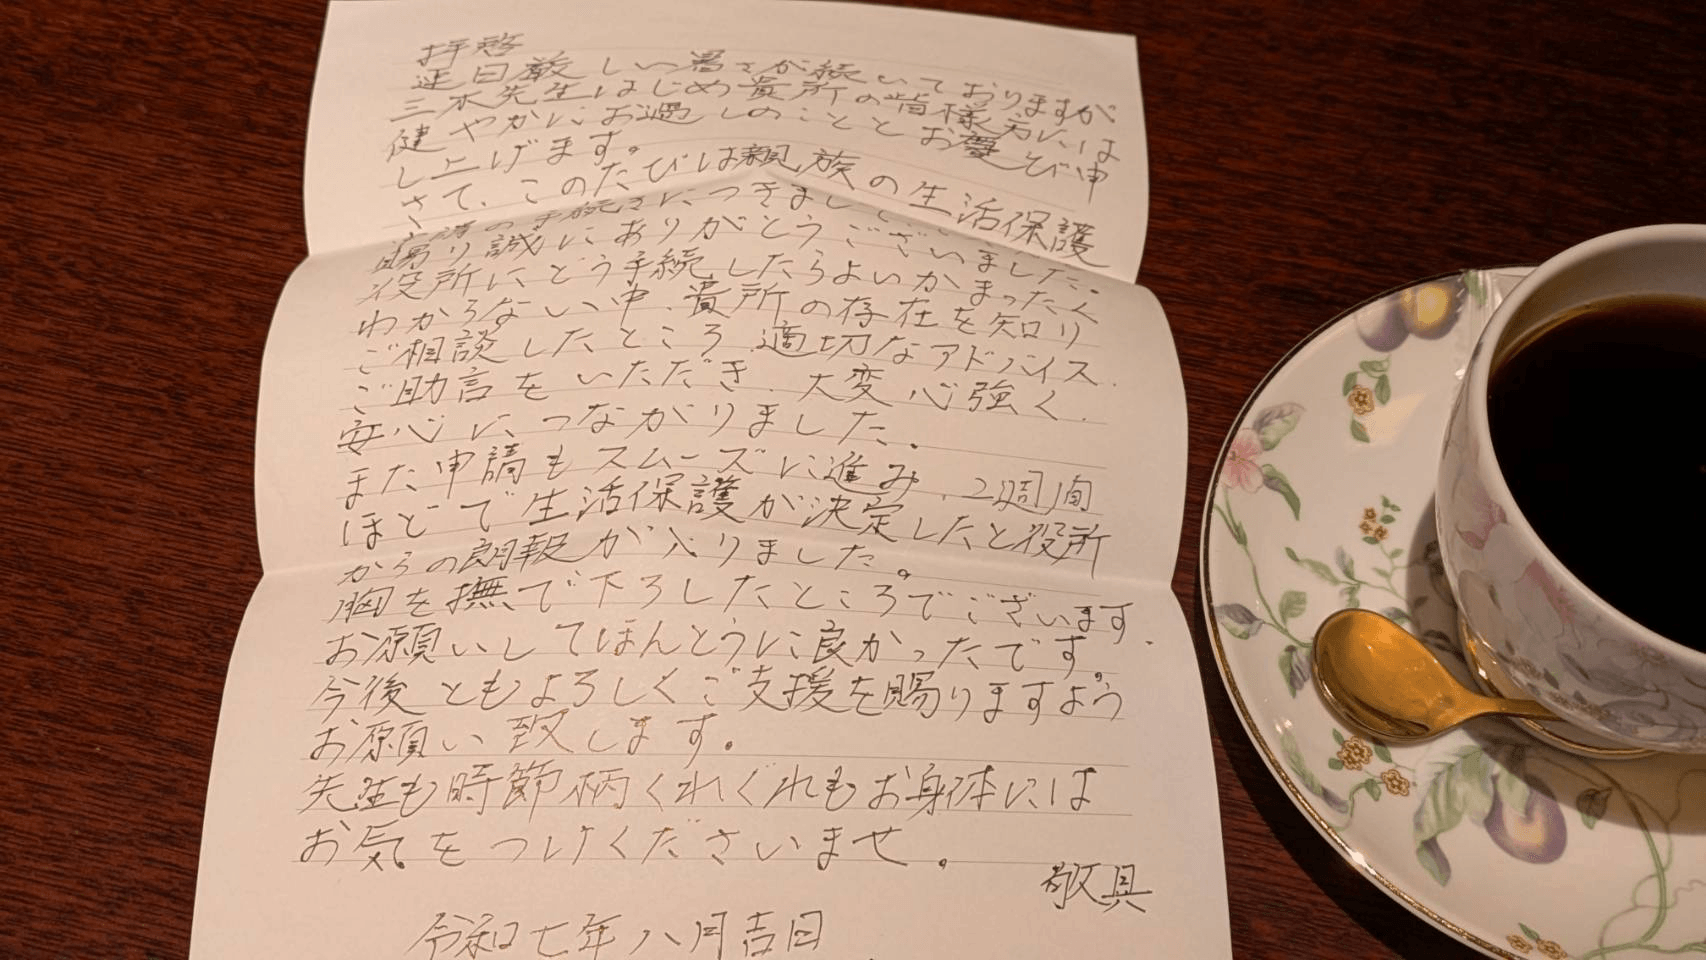 拝啓
連日厳しい暑さが続いておりますが
三木先生はじめ貴所の皆様方には
健やかにお過しのこととお慶び申
し上げます。
さて、このたびは親族の生活保護
の手続きにつきまして
賜り誠にありがとうございました。
役所にどう手続したらよいかまったく
わからない中、貴所の存在を知り
ご相談したところ適切なアドバイス、
ご助言をいただき、大変心強く、
安心につながりました。
また申請もスムーズに進み、2週間
ほどで生活保護が決定したと役所
からの朗報が入りました。
胸を撫で下ろしたところでございます。
お願いしてほんとうに良かったです。
今後ともよろしくご支援を賜りますよう
お願い致します。
先生も時節柄くれぐれもお身体には
お気をつけくださいませ。
敬具
令和七年八月吉日